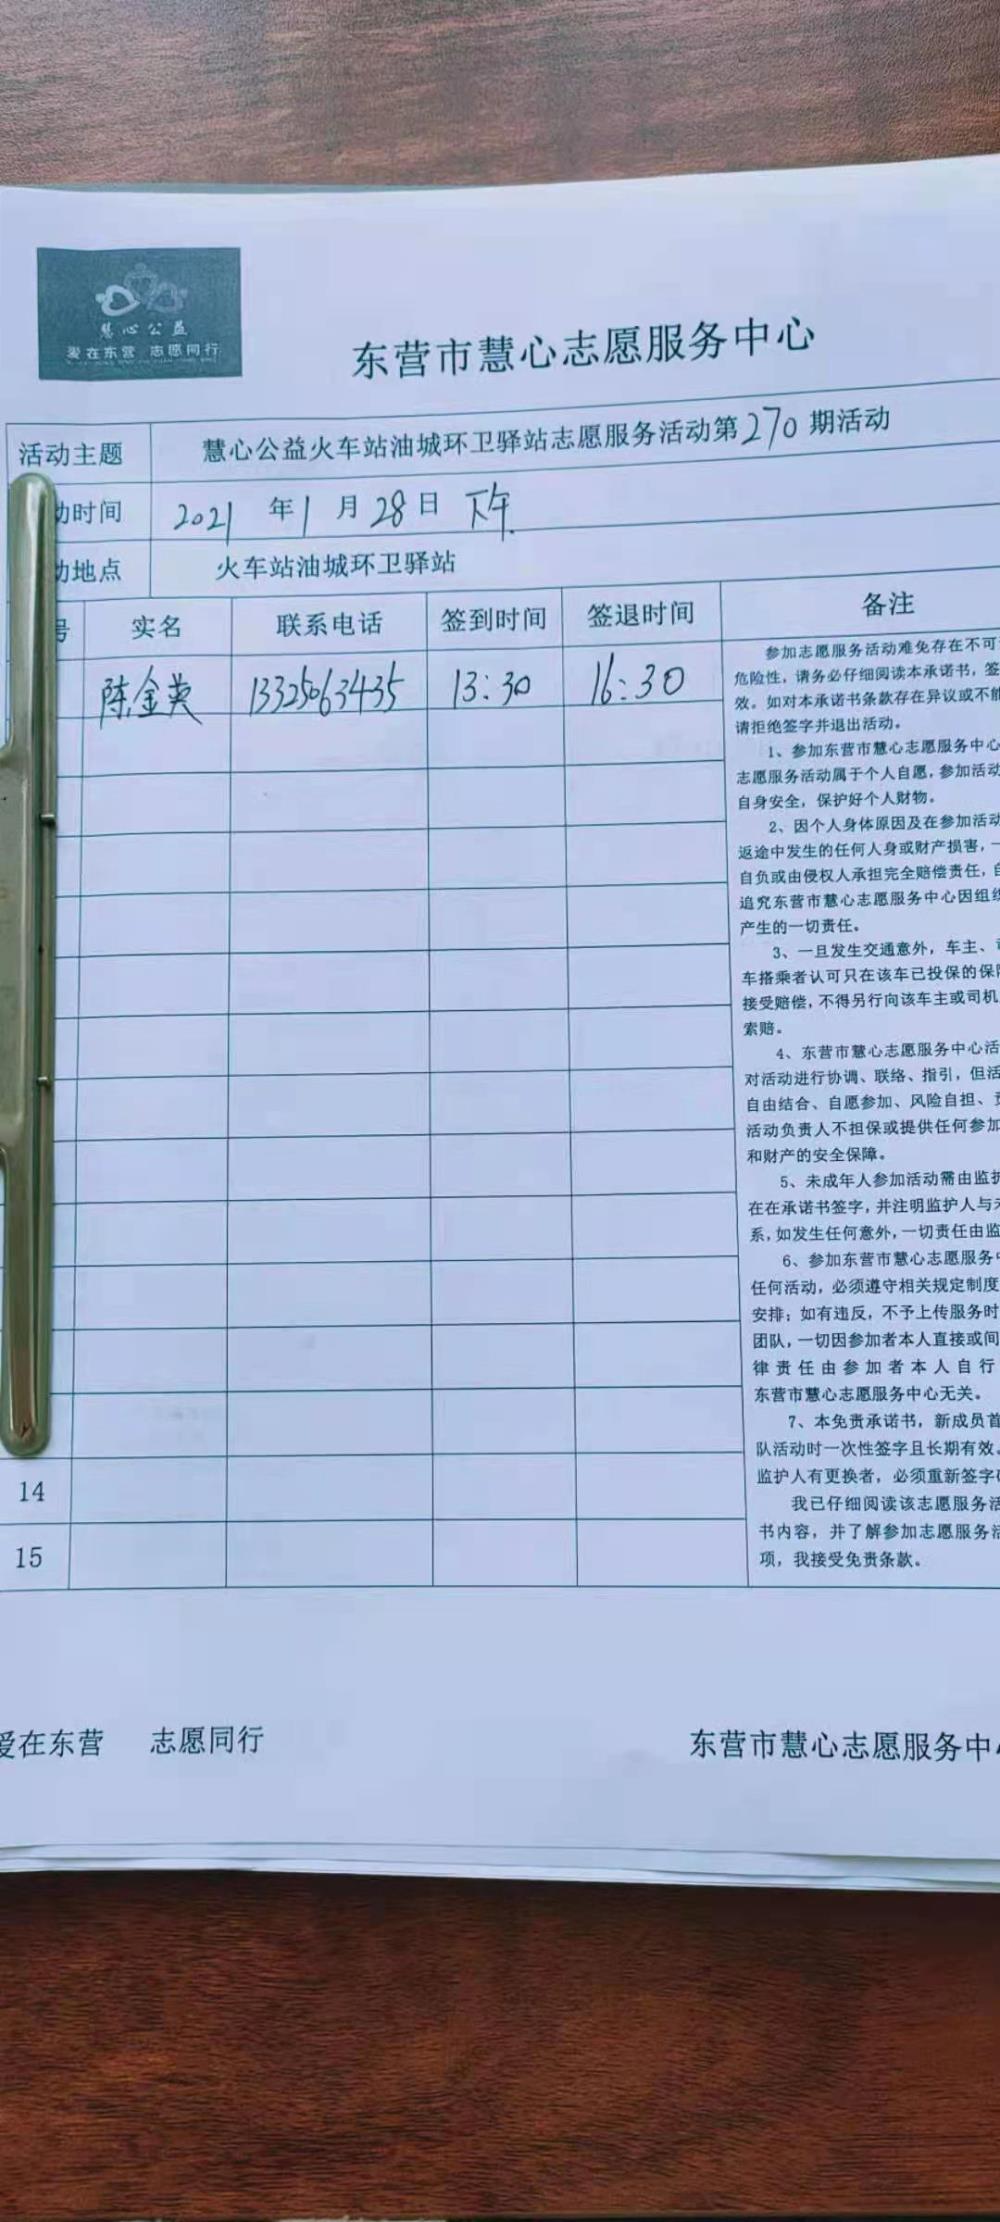 慧心公益
爱在东营 志愿同行
东营市慧心志愿服务中心
活动主题 慧心公益火车站油城环卫驿站志愿服务活动第270期活动
动时间 2021 年 1 月 28 日 下午
动地点 火车站油城环卫驿站
号 实名 联系电话 签到时间 签退时间 备注
陈金英 13325063435 13:30 16:30
参加志愿服务活动难免存在不可
危险性，请务必仔细阅读本承诺书，签
效。如对本承诺书条款存在异议或不能
请拒绝签字并退出活动。
1、参加东营市慧心志愿服务中心
志愿服务活动属于个人自愿，参加活动
自身安全，保护好个人财物。
2、因个人身体原因及在参加活动
返途中发生的任何人身或财产损害，一
自负或由侵权人承担完全赔偿责任，自
追究东营市慧心志愿服务中心因组织
产生的一切责任。
3、一旦发生交通意外，车主、司
车搭乘者认可只在该车已投保的保险
接受赔偿，不得另行向该车主或司机
索赔。
4、东营市慧心志愿服务中心活
对活动进行协调、联络、指引，但活
自由结合、自愿参加、风险自担、责
活动负责人不担保或提供任何参加
和财产的安全保障。
5、未成年人参加活动需由监护
在在承诺书签字，并注明监护人与未
系，如发生任何意外，一切责任由监
6、参加东营市慧心志愿服务中
任何活动，必须遵守相关规定制度
安排；如有违反，不予上传服务时
团队，一切因参加者本人直接或间
律责任由参加者本人自行
东营市慧心志愿服务中心无关。
7、本免责承诺书，新成员首
队活动时一次性签字且长期有效。
监护人有更换者，必须重新签字
我已仔细阅读该志愿服务活
书内容，并了解参加志愿服务活
项，我接受免责条款。
14
15
爱在东营 志愿同行 东营市慧心志愿服务中心